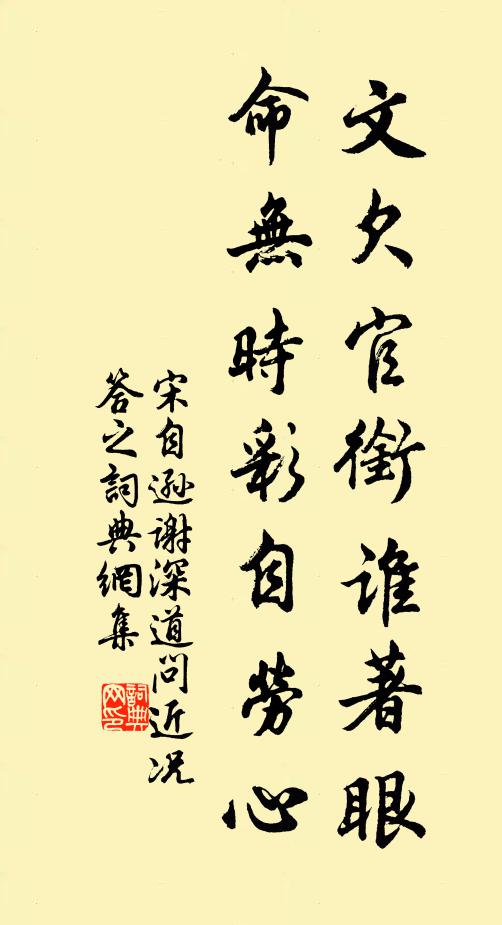 文欠官銜誰著眼
命無時彩自勞心
宋自遜謝深道問近況
答之詞典網集
詞典
网印